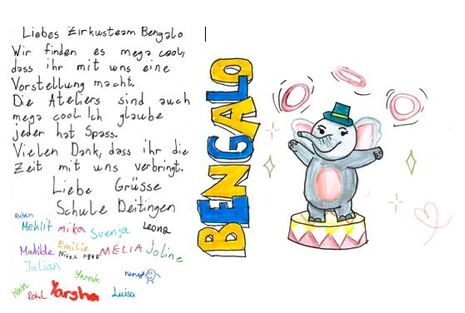 Liebes Zirkusteam Bengalo
Wir finden es mega cool,
dass ihr mit uns eine
Vorstellung macht.
Die Ateliers sind auch
mega cool. Ich glaube
jeder hat Spass.
Vielen Dank, dass ihr die
Zeit mit uns verbringt.
Liebe Grüsse
Schule Deitingen
Ruben
Mehlit Mika Svenja Leona
Mahilde Emilie MELIA Joline
Julian Yannik
Yarsha Luisa
BENGALO